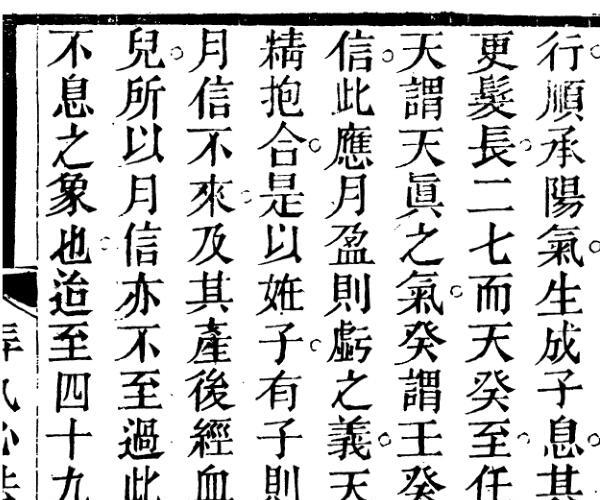 行順承陽氣。生成子息。其
更髮長。二七而天癸至。任
天謂天眞之氣。癸謂王癸
信。此應月盈則虧之義。天
精抱合。是以姙子。有子則
月信不來。及其產後經血
兒。所以月信亦不至過此
不息之象也。迨至四十九